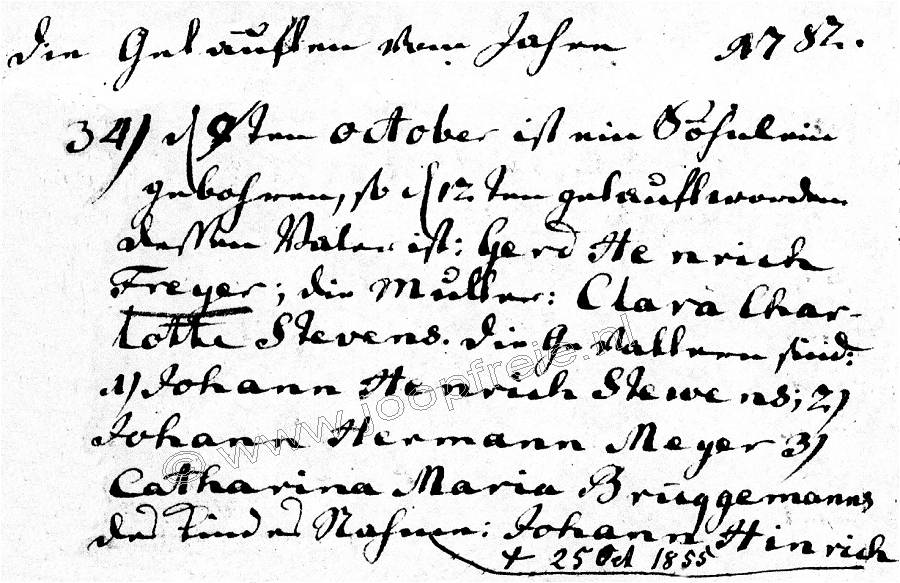 Die Getauften vom Jahre 1782.
34) d 9ten october ist ein Söhnlein
gebohren, so d 12ten getauft worden
dessen Vater ist: Gerd Henrich
Freyer; die Mutter: Clara Char-
lotte Stevens. Die Gevattern sind:
1) Johann Henrich Stewens; 2)
Johann Hermann Meyer 3)
Catharina Maria Brüggemanns
des Kindes Nahme: Johann Hinrich
+ 25 Oct 1855
© www.joopfreie.nl